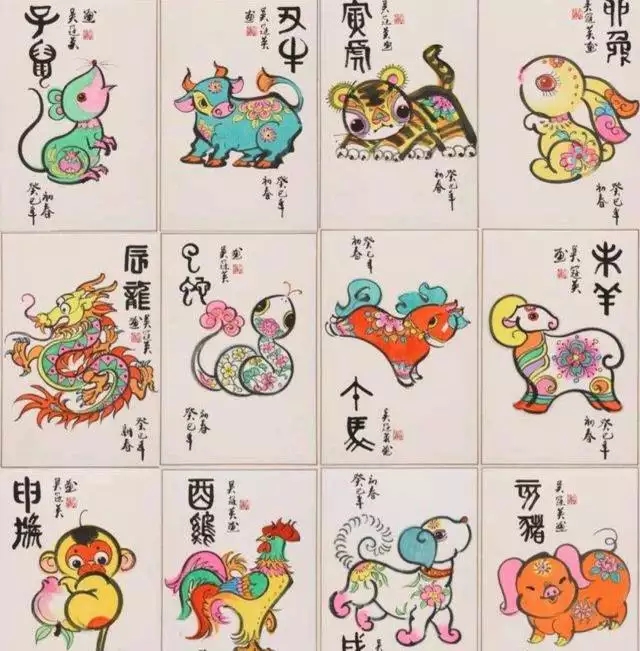 子鼠
吴冠英画
癸巳年
初春
丑牛
吴冠英画
癸巳年
初春
寅虎
吴冠英画
癸巳年
初春
卯兔
吴冠英画
癸巳年
初春
辰龍
吴冠英画
癸巳年
初春
巳蛇
吴冠英画
癸巳年
初春
癸巳年
初春
午馬
吴冠英画
未羊
吴冠英画
癸巳年
初春
申猴
吴冠英画
酉鷄
吴冠英画
癸巳年
初春
亥猪
吴冠英画